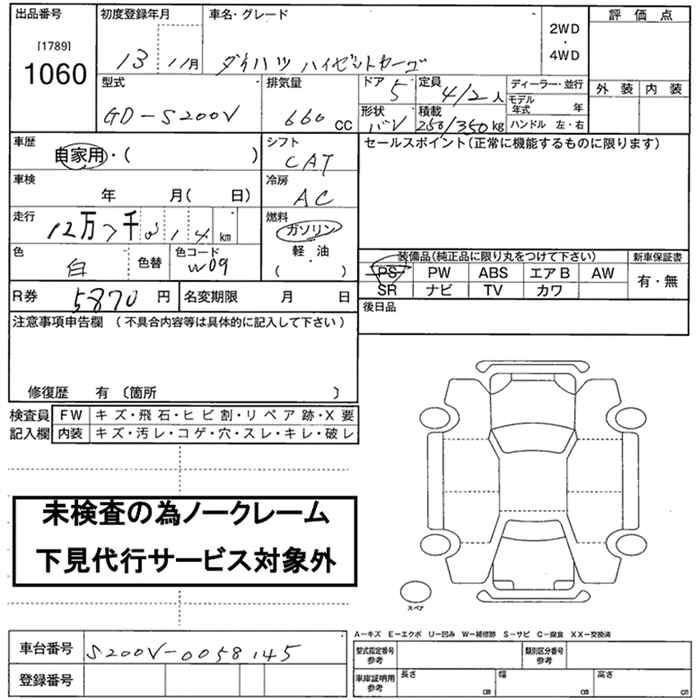 出品番号 初度登録年月 車名・グレード 2WD・4WD 評価点
[1789]
1060 13 11月 ダイハツ ハイゼットカーゴ
外装 内装
型式 排気量 ドア 5 定員 4/2人 ディーラー・並行
GD-S200V 660cc 形状 バン 積載 250/350kg モデル年式 年
ハンドル 左・右
車歴 シフト セールスポイント(正常に機能するものに限ります)
自家用・( ) CAT
車検 冷房
年 月( 日) AC
走行 燃料
12万7千 14km ガソリン
色 色替 色コード 軽・油
白 W09 ( )
装備品(純正品に限り丸をつけて下さい) 新車保証書
PS PW ABS エアB AW 有・無
SR ナビ TV カワ
R券 5870円 名変期限 月 日
後日品
注意事項申告欄(不具合内容等は具体的に記入して下さい)
修復歴 有〔箇所 〕
検査員 FW キズ・飛石・ヒビ割・リペア跡・X要
記入欄 内装 キズ・汚レ・コゲ・穴・スレ・キレ・破レ
未検査の為ノークレーム
下見代行サービス対象外
スペア
A-キズ E-エクボ U-凹み W-補修跡 S-サビ C-腐食 XX-交換済
車台番号 S200V-0058145 型式指定番号 参考 類別区分番号 参考
登録番号 車庫証明用 参考 長さ cm 幅 cm 高さ cm